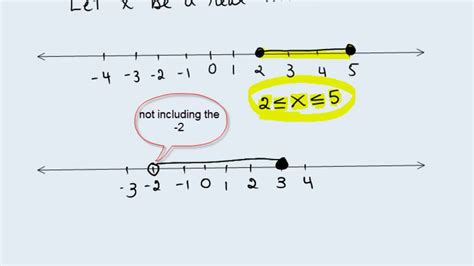 Let x be a real
-4 -3 -2 -1 0 1 2 3 4 5
2 ≤ x ≤ 5
not including the
-2
-3 -2 -1 0 1 2 3 4